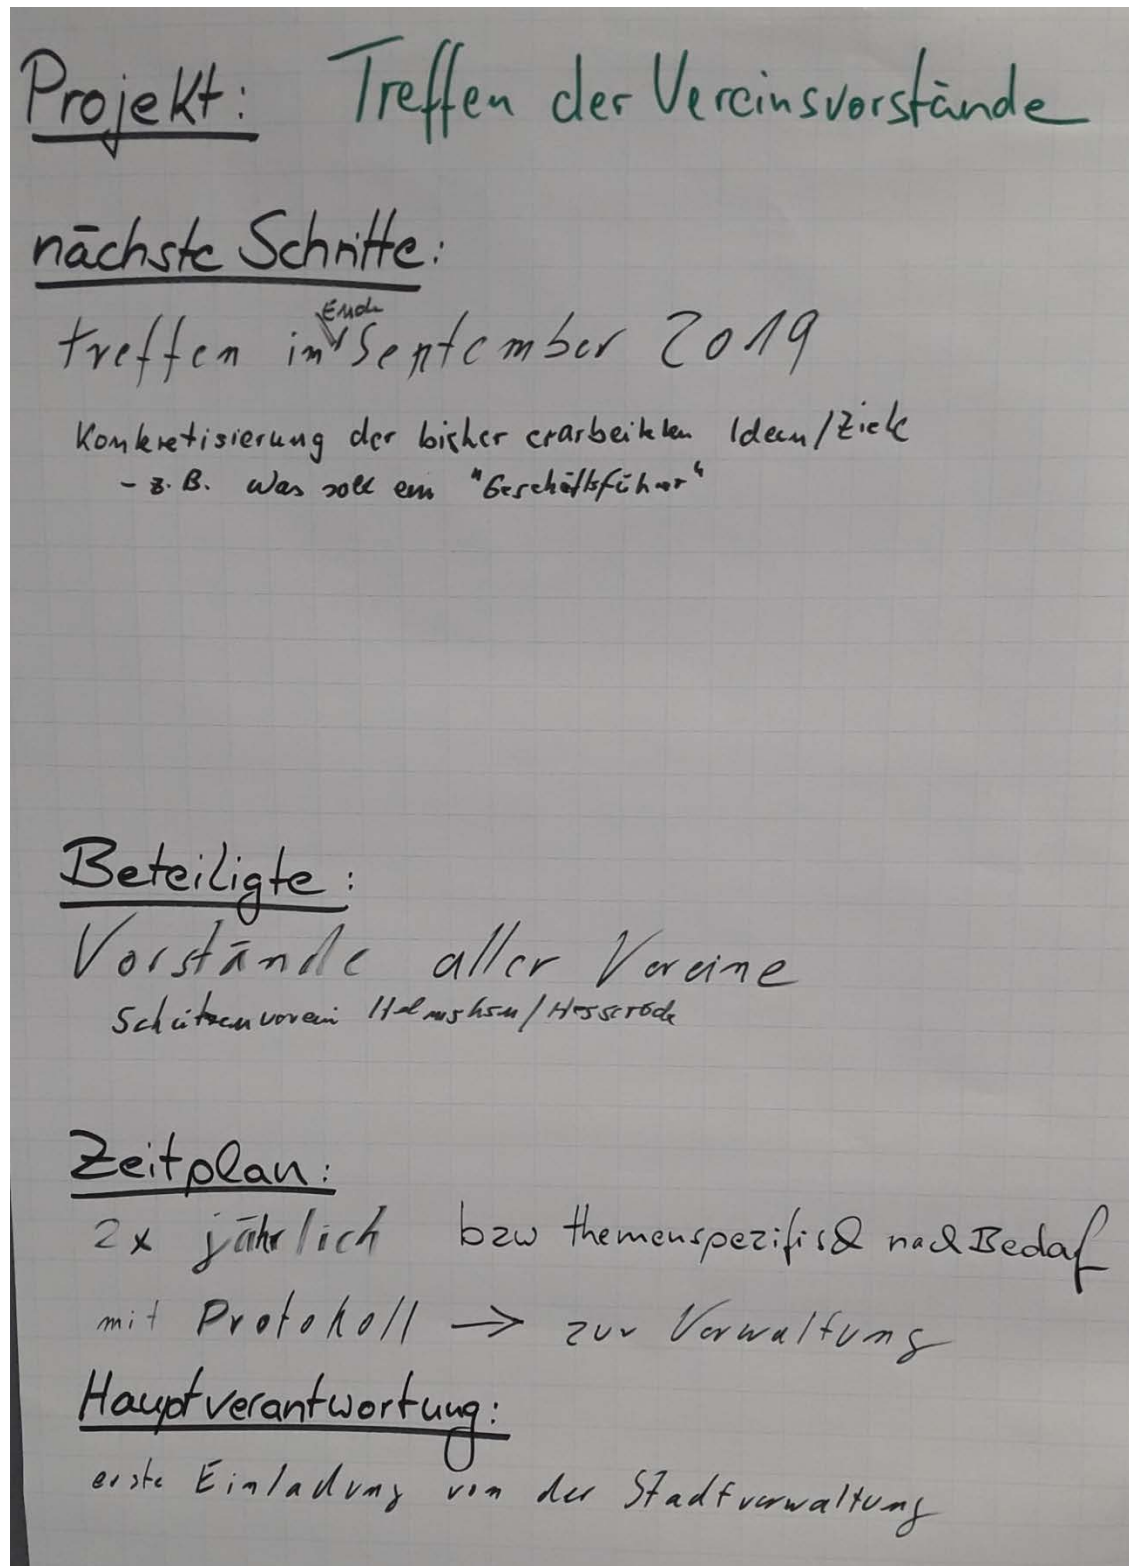 Projekt: Treffen der Vereinsvorstände
nächste Schritte:
Ende
treffen im September 2019
Konkretisierung der bisher erarbeiteten Ideen/Ziele
- z.B. Was soll ein "Geschäftsführer"
Beteiligte:
Vorstände aller Vereine
Schützenverein Helmshsn/Hesserode
Zeitplan:
2x jährlich bzw themenspezifisch nach Bedaf
mit Protokoll → zur Verwaltung
Hauptverantwortung:
erste Einladung von der Stadtverwaltung